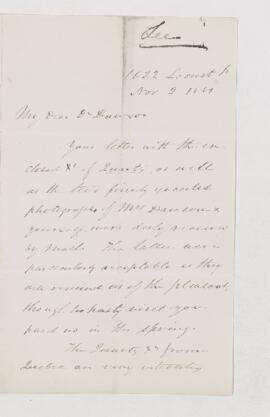 Lee
1622 Locust St
Nov 2 1881
My Dear Dr Dawson
Your letter with the en-
closed Xl of Quartz, as well
as the two finely executed
photographs of Mrs Dawson &
yourself, were duly received
by mail. The latter were
particularly acceptable as they
remind us of the pleasant,
though too hasty visit you
paid us in the spring.
The Quartz Xs from
Quebec are very interesting